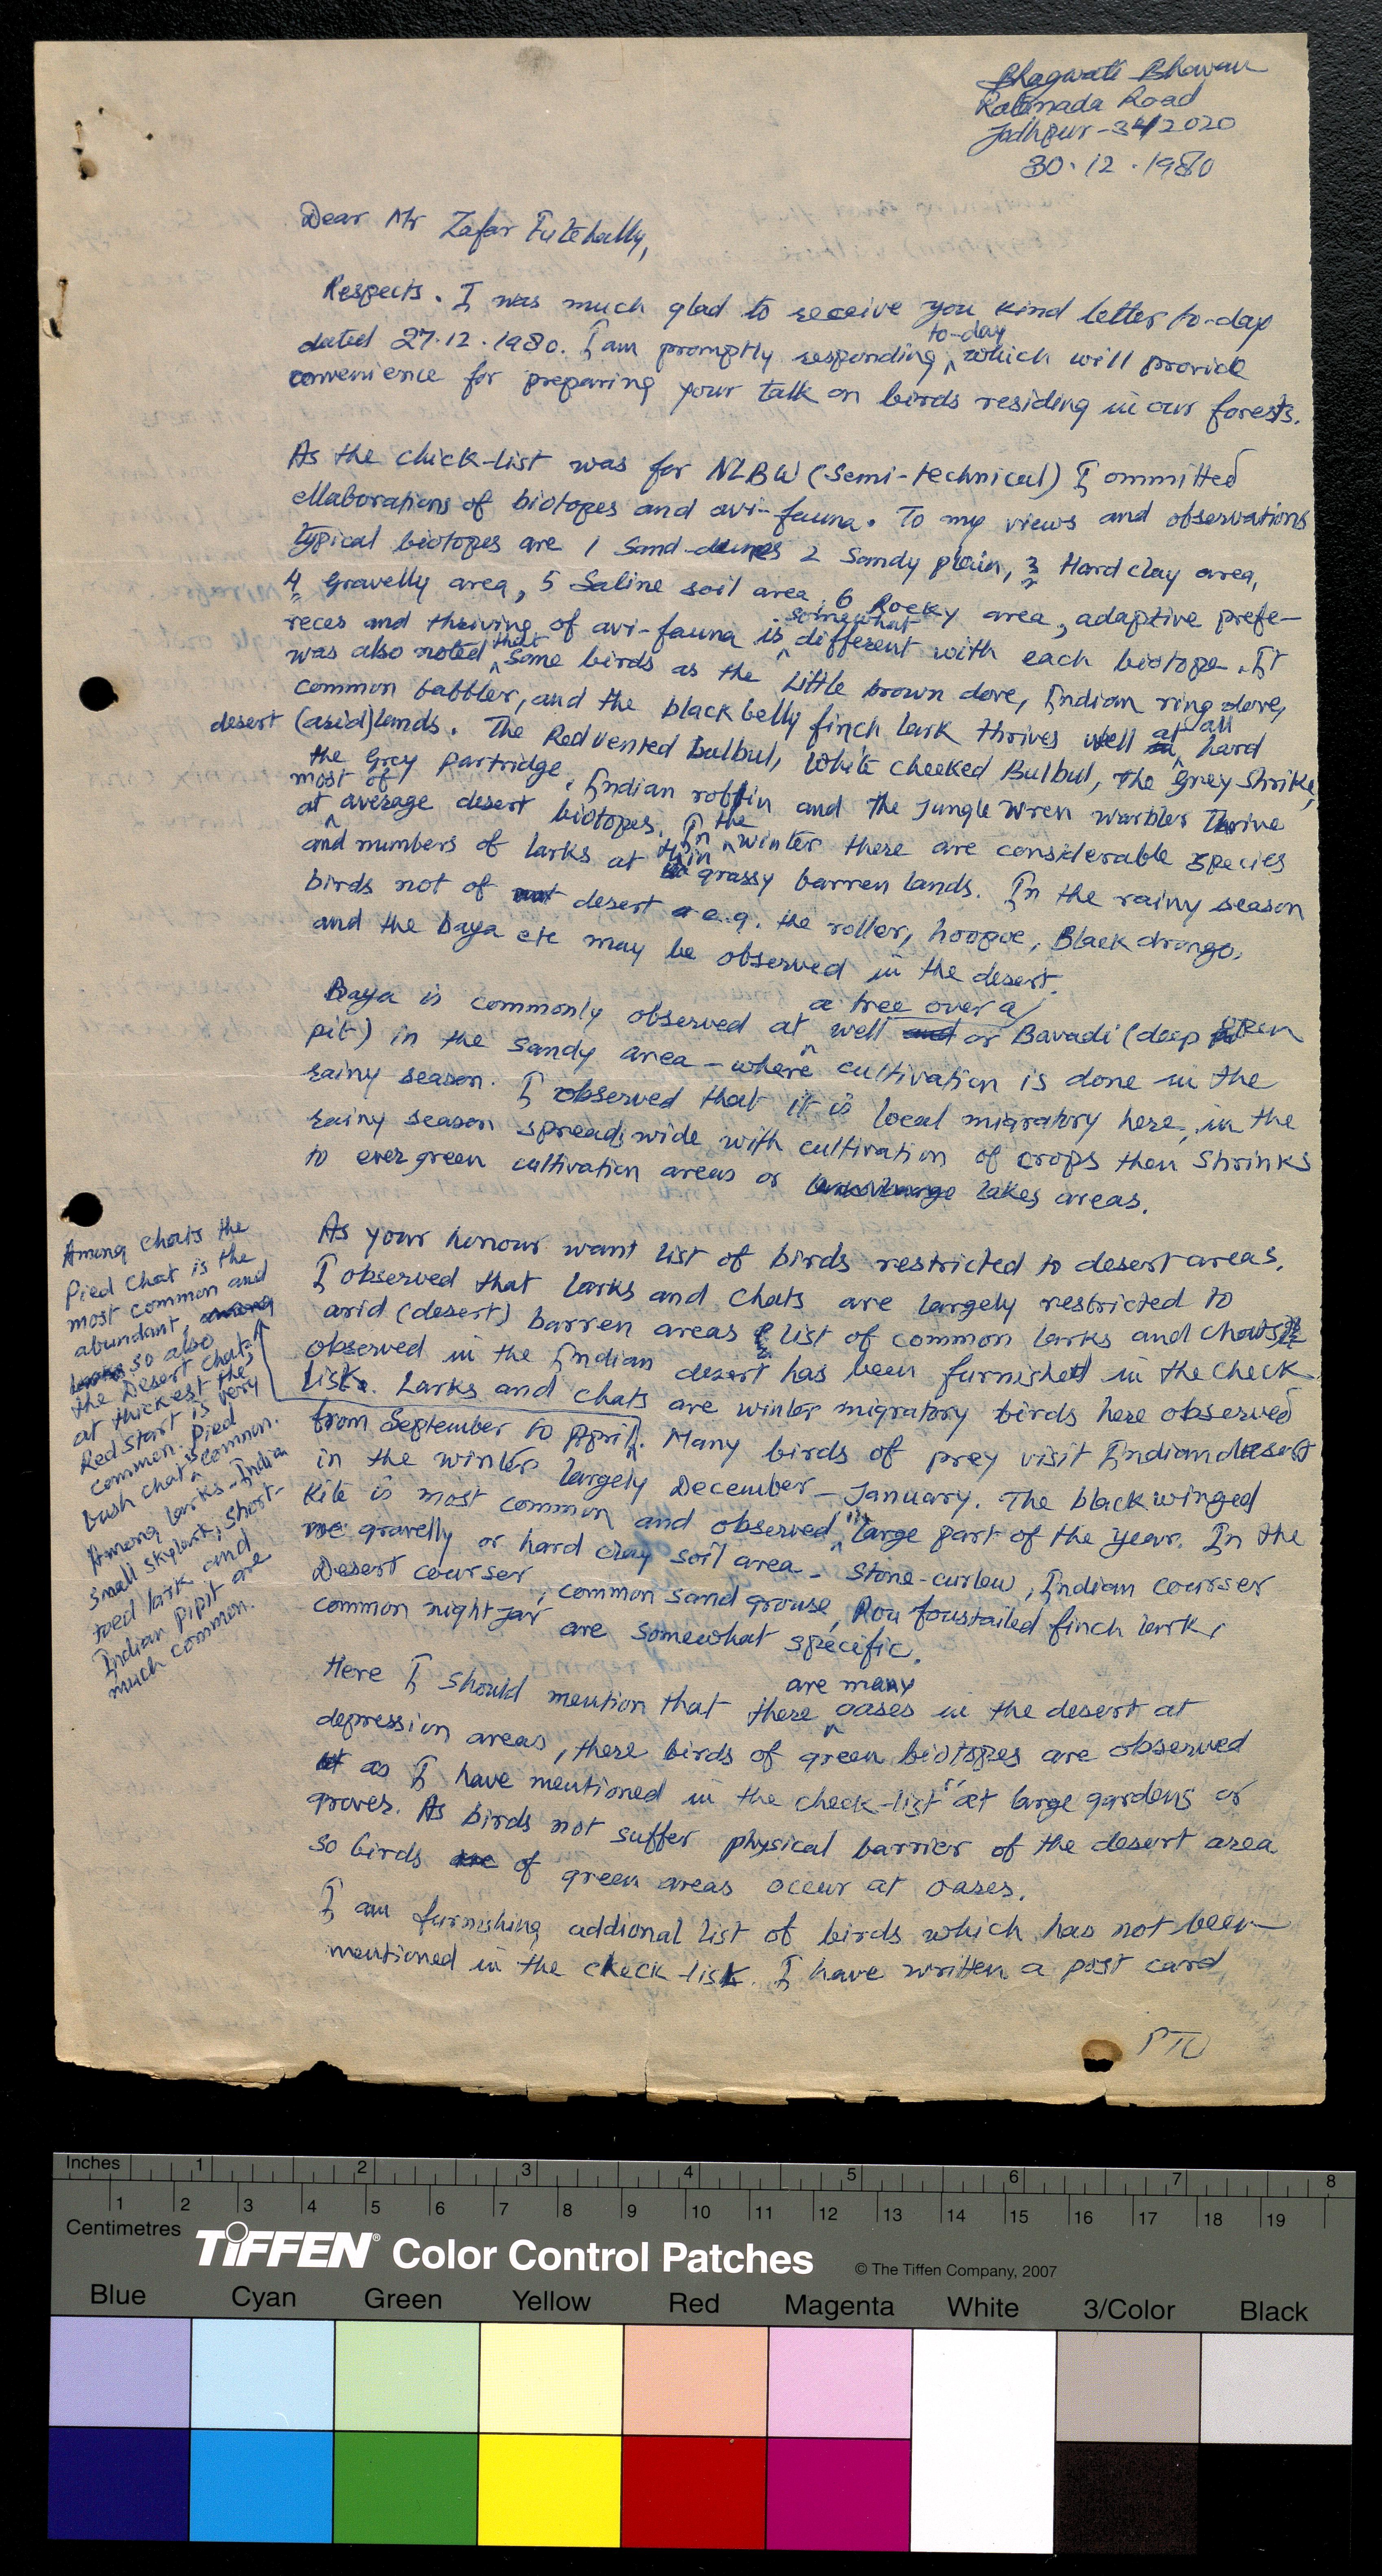 Bhagwati Bhavan
Ratanada Road
Jodhpur-342020
30.12.1980
Dear Mr Zafar Futehally,
Respects. I was much glad to receive you kind letter to-day
dated 27.12.1980. I am promptly responding to-day which will provide
convenience for preparing your talk on birds residing in our forests.
As the chick-list was for NLBW (Semi-technical) I ommitted
ellaborations of biotopes and avi-fauna. To my views and observations
typical biotopes are 1 Sand-dunes 2 Sandy plain, 3 Hard clay area,
4 gravelly area, 5 Saline soil area, 6 Rocky area, adaptive prefe-
reces and thriving of avi-fauna is somewhat different with each biotope. It
was also noted that some birds as the Little brown dove, Indian ring dove,
common babbler, and the black belly finch lark thrives well at all hard
desert (arid) lands. The Red vented bulbul, White cheeked Bulbul, the grey Shrike,
the Grey Partridge, Indian robbin and the Jungle Wren warbler Thrive
at most of average desert biotopes. In the winter there are considerable species
and numbers of larks at thin grassy barren lands. In the rainy season
birds not of desert e.g. the roller, hoopoe, Black drongo,
and the baya etc may be observed in the desert.
Baya is commonly observed at a tree over a well or Bavadi (deep open
pit) in the sandy area - where cultivation is done in the
rainy season. I observed that it is local migratory here, in the
rainy season spreads wide with cultivation of crops then shrinks
to ever green cultivation areas or lakes areas.
As your honour want list of birds restricted to desert areas.
I observed that larks and chats are largely restricted to
arid (desert) barren areas list of common larks and chats
observed in the Indian desert has been furnished in the check
list. Larks and chats are winter migratory birds here observed
from September to April. Many birds of prey visit Indian desert
in the winter largely December - January. The black winged
Kite is most common and observed in large part of the year. In the
gravelly or hard clay soil area - Stone-curlew, Indian courser
Desert courser, common sand grouse, Rou foustailed finch lark,
common nightjar are somewhat specific.
Here I should mention that there are many oases in the desert at
depression areas, there birds of green biotopes are observed
as I have mentioned in the check-list "at large gardens or
groves. As birds not suffer physical barrier of the desert area
so birds of green areas occur at oases.
I am furnishing addional list of birds which has not been
mentioned in the check-list. I have written a post card
PTO
Among chats the
Pied Chat is the
most common and
abundant,
so also
the Desert chat
at thickest the
Red start is very
common. Pied
bush chat is common.
Among larks - Indian
small skylark, short-
toed lark and
Indian pipit are
much common.
Inches 1 2 3 4 5 6 7 8
1 2 3 4 5 6 7 8 9 10 11 12 13 14 15 16 17 18 19
Centimetres
TIFFEN® Color Control Patches © The Tiffen Company, 2007
Blue Cyan Green Yellow Red Magenta White 3/Color Black